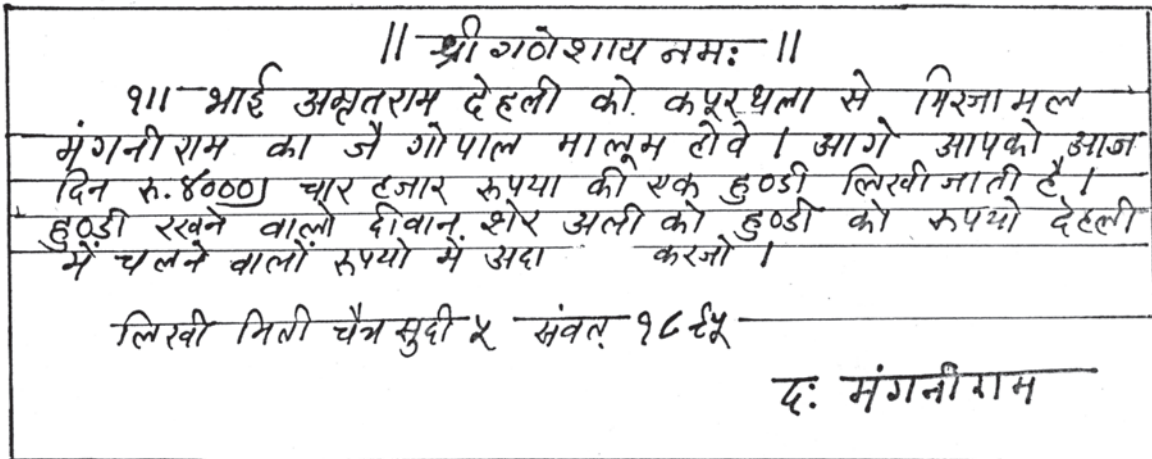 ॥ श्री गणेशाय नमः ॥
१॥ भाई अमृतराम देहली को कपूरथला से मिरजामल
मंगनीराम का जै गोपाल मालूम होवे । आगे आपको आज
दिन रु. ४०००) चार हजार रूपया की एक हुण्डी लिखी जाती है ।
हुण्डी रखने वालो दीवान शेर अली को हुण्डी को रूपयो देहली
में चलने वालों रूपयो में अदा करजो ।
लिखी मिती चैत्र सुदी ५ संवत् १८९५
द: मंगनीराम